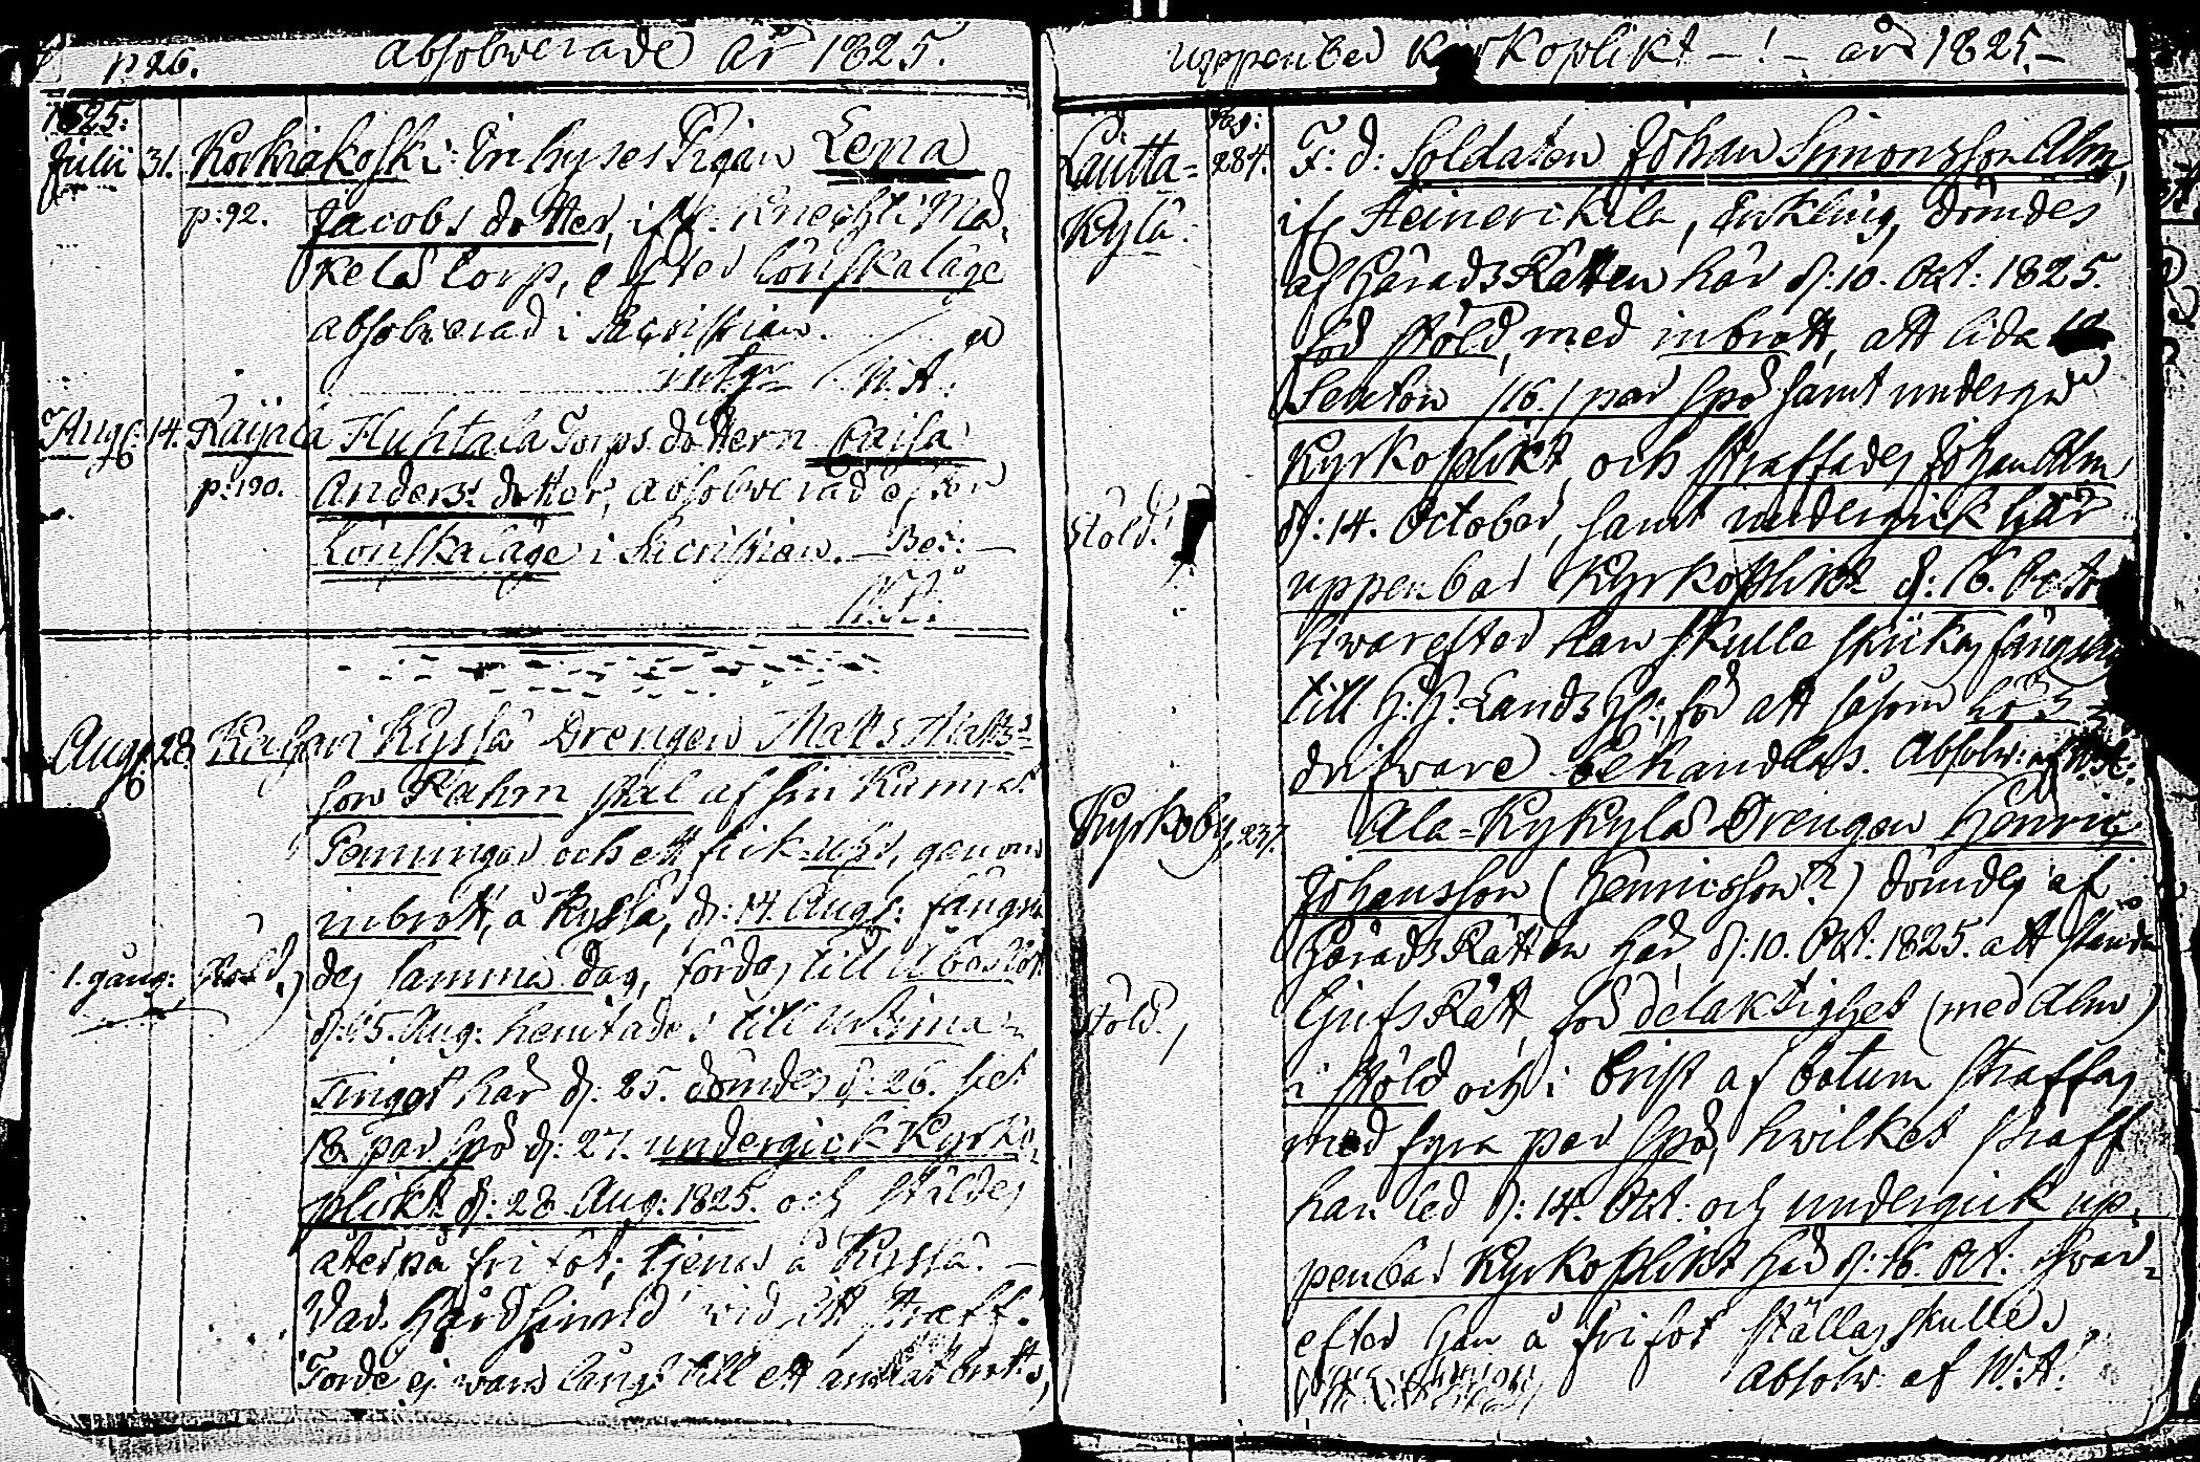 p 26. absolverade år 1825.
1825:
Julii 31. Korkiakoski: Inhyses Pigan Lena
p: 92. Jacobs dotter, ifr. Knechti Mä-
kelä torp, efter Lönskaläge
absolverad i Sacristian.
W. A.
Aug: 14. Raijala Huhtala Torps dottern Caisa
p: 190. Anders dotter, absolverad efter
Lönskaläge i Sacristian. Bes:
Aug: 28 Kahari Kyssä Drengen Matts Matts-
son Rahm stal af sin Kamrat
Penningar och ett fick-uhr, genom
inbrott, å Kyssä, d: 14. Aug: fångsla-
1. gång: Stöld, des samma dag, fördes till Åbo slott
d: 15. Aug: hemtades till Urtima
Tinget här d: 25. dömdes d: 26. fick
18 par spö d: 27. undergick Kyrko-
plikt d: 28. Aug: 1825. och stäldes
åter på fri fot; tjenar å Kyssä.
Var hårdsinnad vid sitt straff.
Torde ej vara långt till ett annat brott,
uppenbar Kyrkoplikt - ! - år 1825.
Pag:
Lautta= 284. F: d: Soldaten Johan Simonsson Alm,
Kylä. ifr Heinerikila, Enkling, dömdes
af Härads Rätten här d: 10. Oct: 1825.
för stöld, med inbrott, att lida
Sexton /16./ par spö samt undergå
Kyrkoplikt, och straffades Johan Alm
Stöld. d: 14. October, samt undergick här
uppenbar Kyrkoplikt d: 16. Octob
hvarefter han skulle skickas fången
till H. H. Landsh:, för att såsom
drifvare behandlas. Absolv: af W. A:
Kyrkoby, 237. Ala=Kykylä Drengen Henric
Johansson (Henricsson?) dömdes af
HäradsRätten här, d: 10. Oct: 1825. att stånda
Stöld, tjufsRätt, för delaktighet (med Alm)
i stöld och i brist af botum straffas
med fyra par spö, hvilket straff
han led d: 14. Oct: och undergick up-
penbar Kyrkoplikt här d: 16. Oct: hvar-
efter han å fri fot ställas skulle.
Absolv. af W. A.